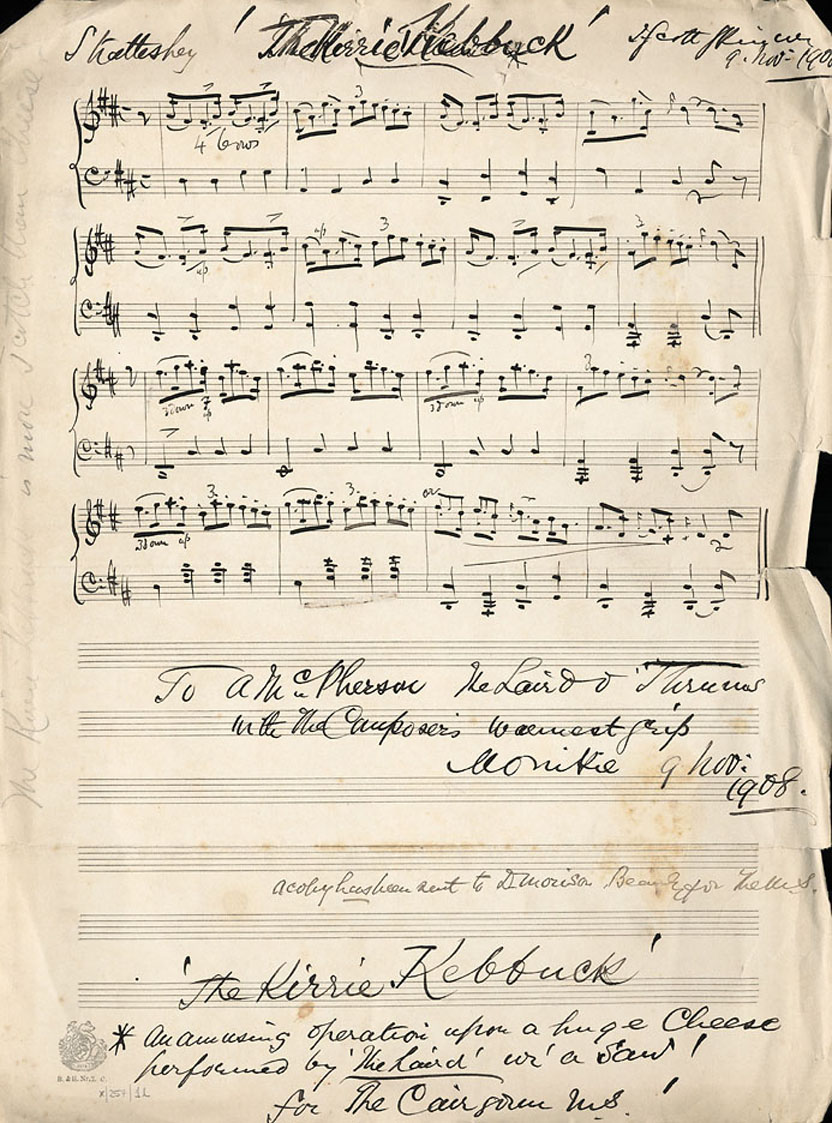 Strathspey 'The Kirrie Kebbuck' * J. Scott Skinner
9. Nov: 1908
4 Bows
3
up
3
up
3
3 down up
3 down up
3
3
3
or
3 down up
To A McPherson The Laird o' Thrums
with The Composer's warmest grip
Monikie 9 Nov:
1908.
a copy has been sent to D Morison Beauly for The M.S.
'The Kirrie Kebbuck'
* An amusing operation upon a huge Cheese
performed by 'The Laird' wi' a Saw!
for The Cairgorum M.S.!
B. & H. Nr. 2. C.
The Kirrie Kebbuck is more Scotch than Cheese